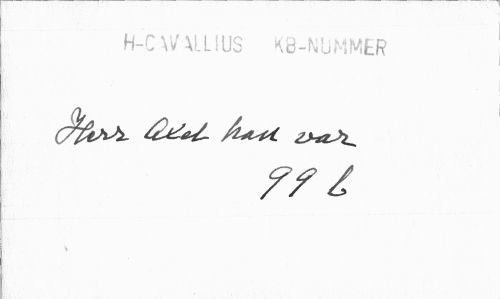 H-CAVALLIUS KB-NUMMER
Herr Axel han var
99 b